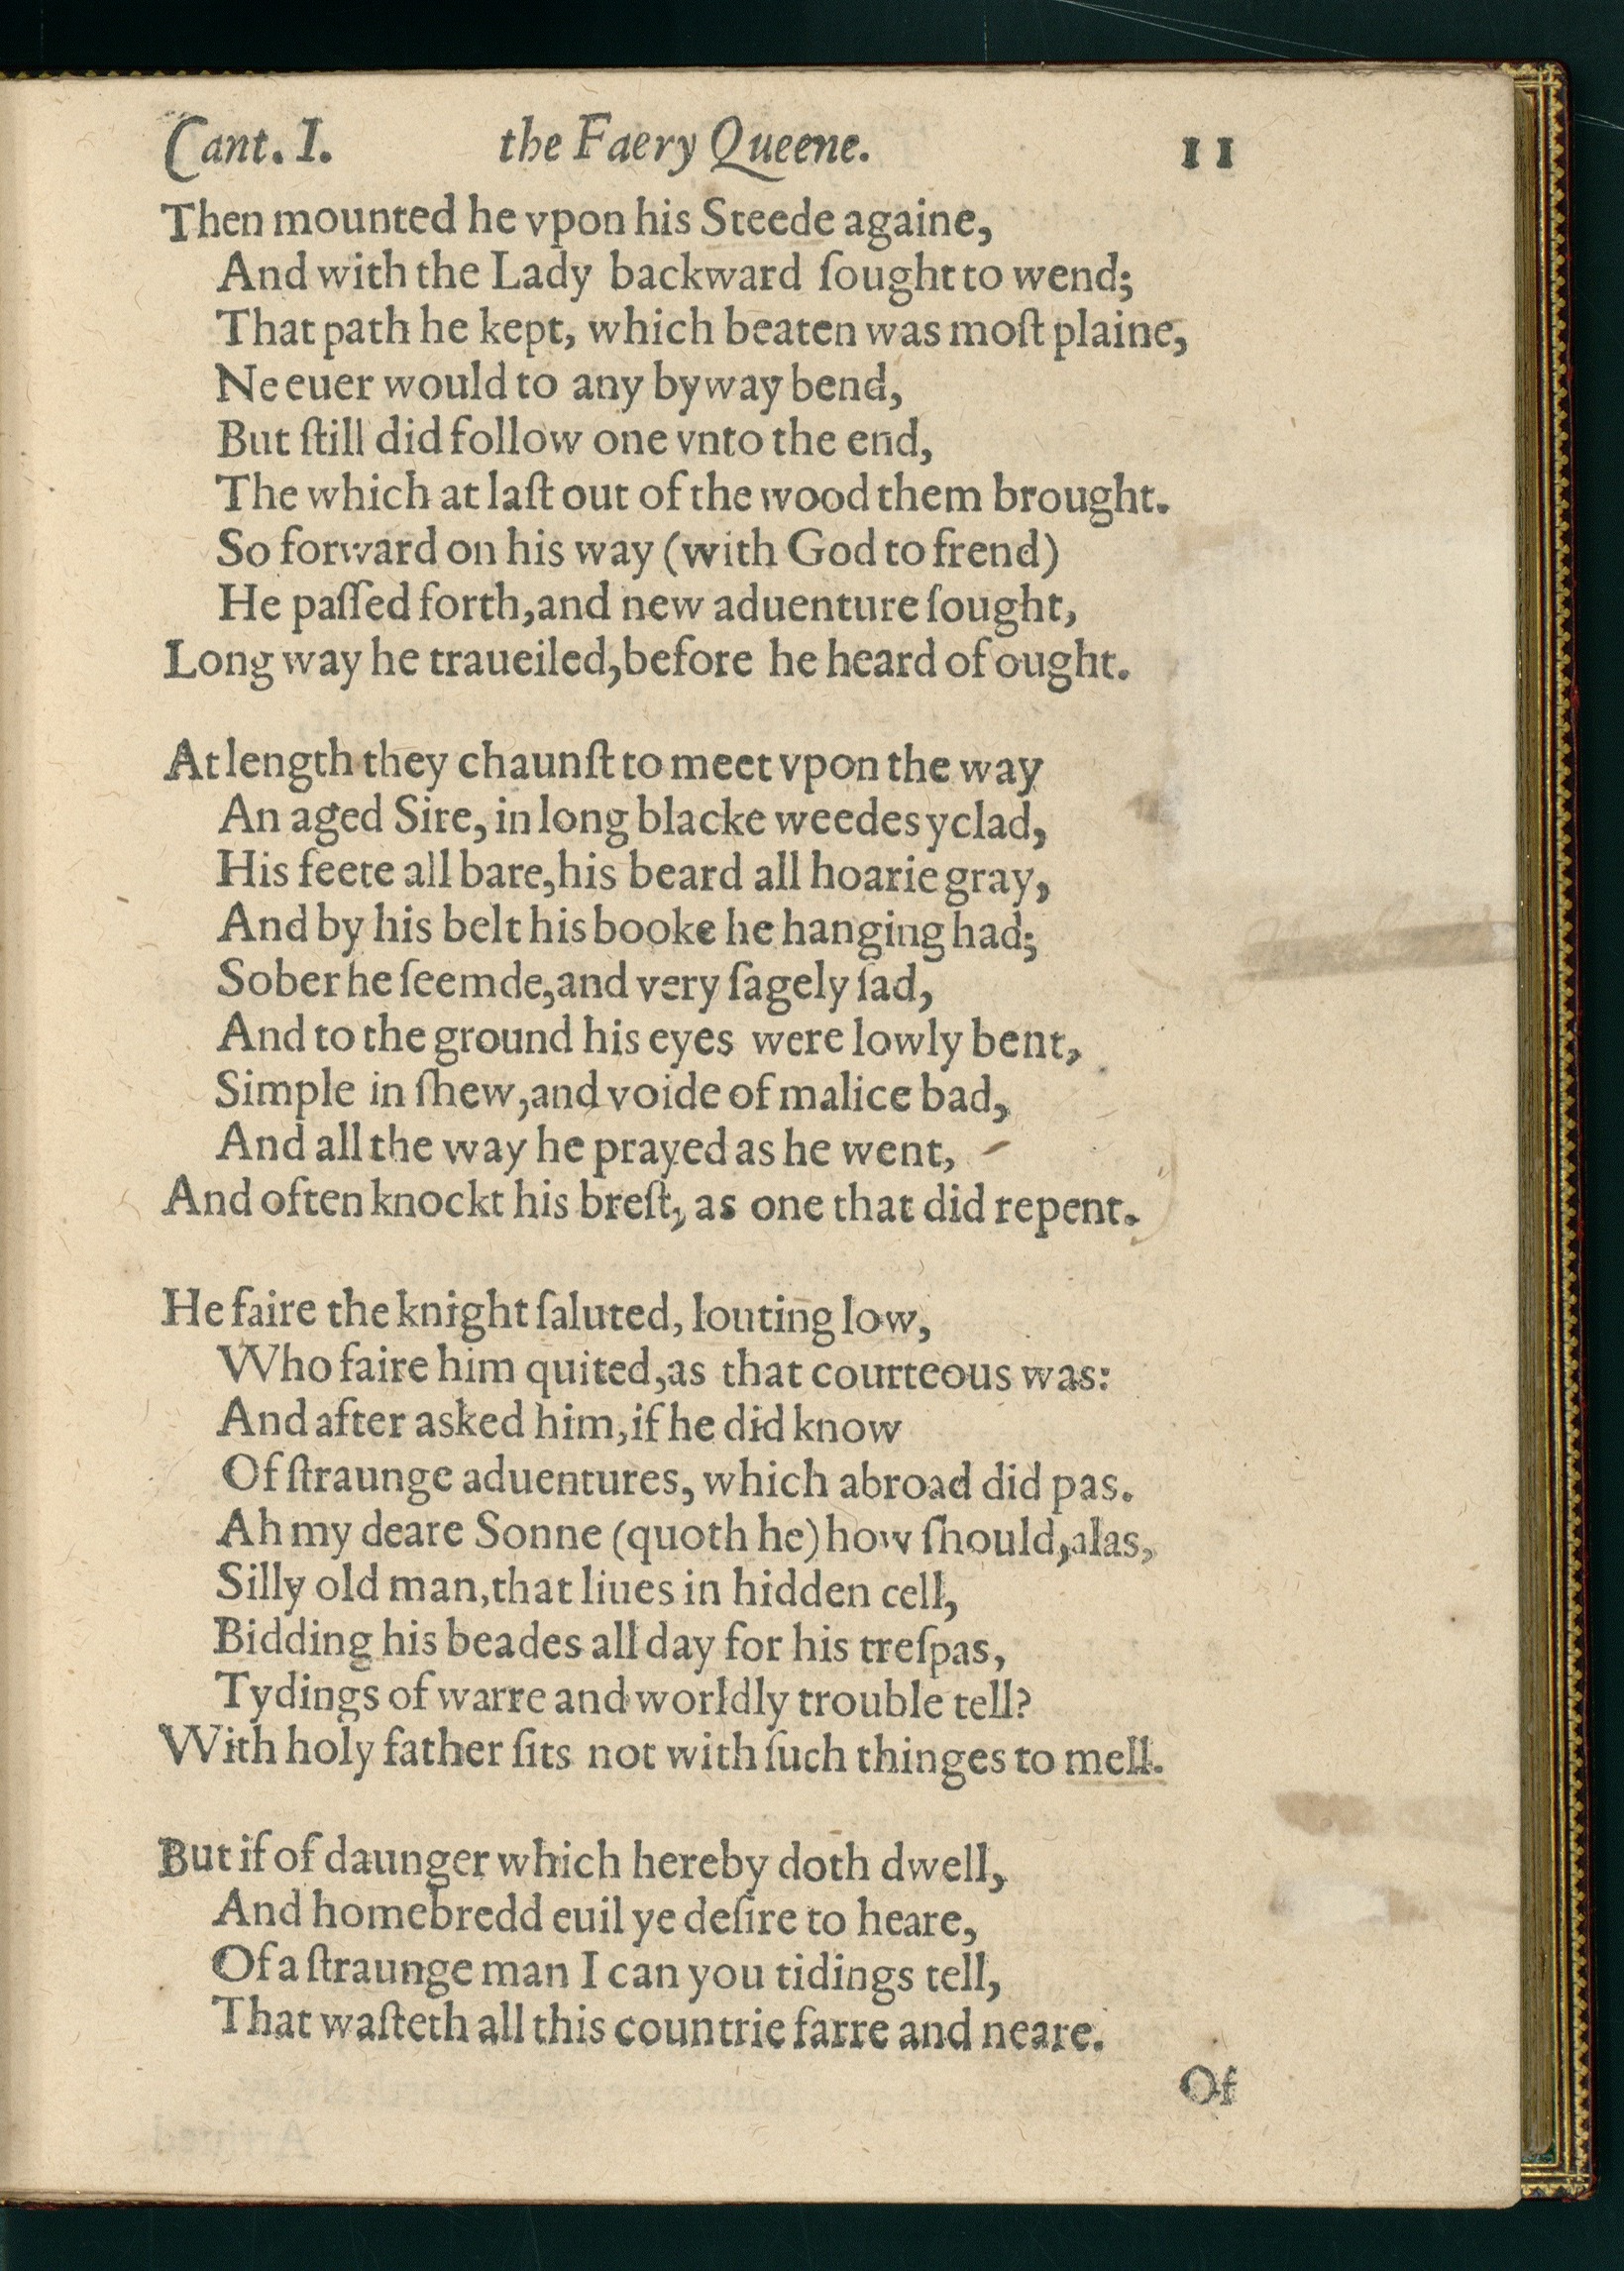 Cant. I. the Faery Queene. 11
Then mounted he vpon his Steede againe,
And with the Lady backward ſought to wend;
That path he kept, which beaten was moſt plaine,
Ne euer would to any byway bend,
But ſtill did follow one vnto the end,
The which at laſt out of the wood them brought.
So forward on his way (with God to frend)
He paſſed forth, and new aduenture ſought,
Long way he traueiled, before he heard of ought.
At length they chaunſt to meet vpon the way
An aged Sire, in long blacke weedes yclad,
His feete all bare, his beard all hoarie gray,
And by his belt his booke he hanging had;
Sober he ſeemde, and very ſagely ſad,
And to the ground his eyes were lowly bent,
Simple in ſhew, and voide of malice bad,
And all the way he prayed as he went,
And often knockt his breſt, as one that did repent.
He faire the knight ſaluted, louting low,
Who faire him quited, as that courteous was:
And after asked him, if he did know
Of ſtraunge aduentures, which abroad did pas.
Ah my deare Sonne (quoth he) how ſhould, alas,
Silly old man, that liues in hidden cell,
Bidding his beades all day for his treſpas,
Tydings of warre and worldly trouble tell?
With holy father ſits not with ſuch thinges to mell.
But if of daunger which hereby doth dwell,
And homebredd euil ye deſire to heare,
Of a ſtraunge man I can you tidings tell,
That waſteth all this countrie farre and neare.
Of